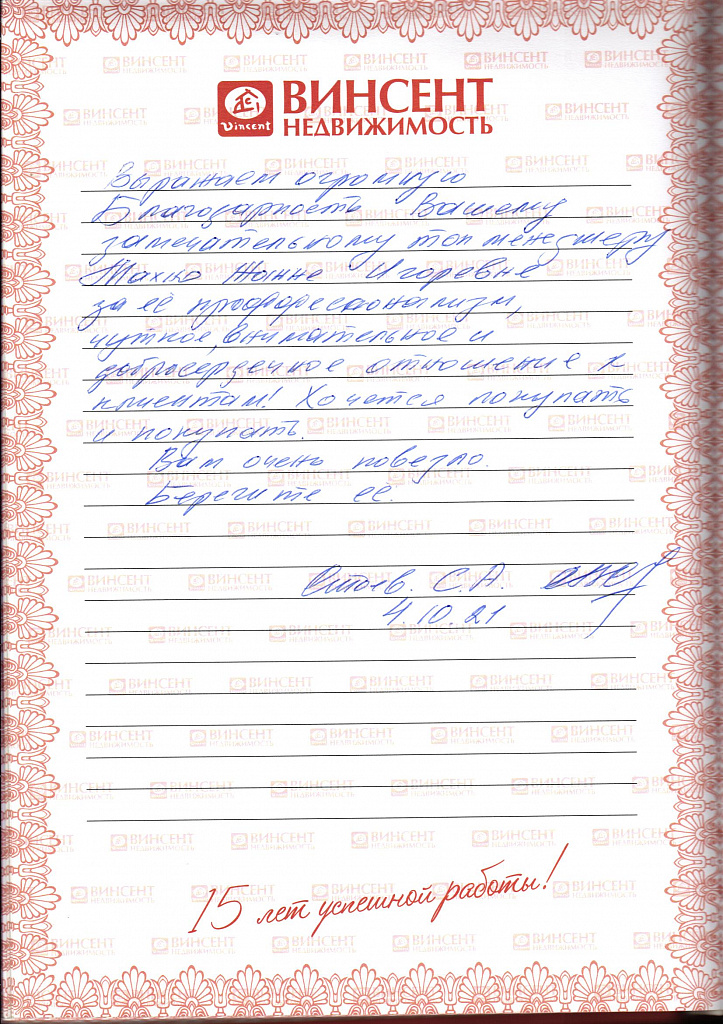 Vincent
ВИНСЕНТ
НЕДВИЖИМОСТЬ
Выражаем огромную
Благодарность Вашему
замечательному топ менеджеру
Махко Жанне Игоревне
за её профферессионализм,
чуткое, внимательное и
добросердечное отношение к
клиентам! Хочется покупать
и покупать.
Вам очень повезло.
Берегите её.
С.А.
4.10.21
15 лет успешной работы!